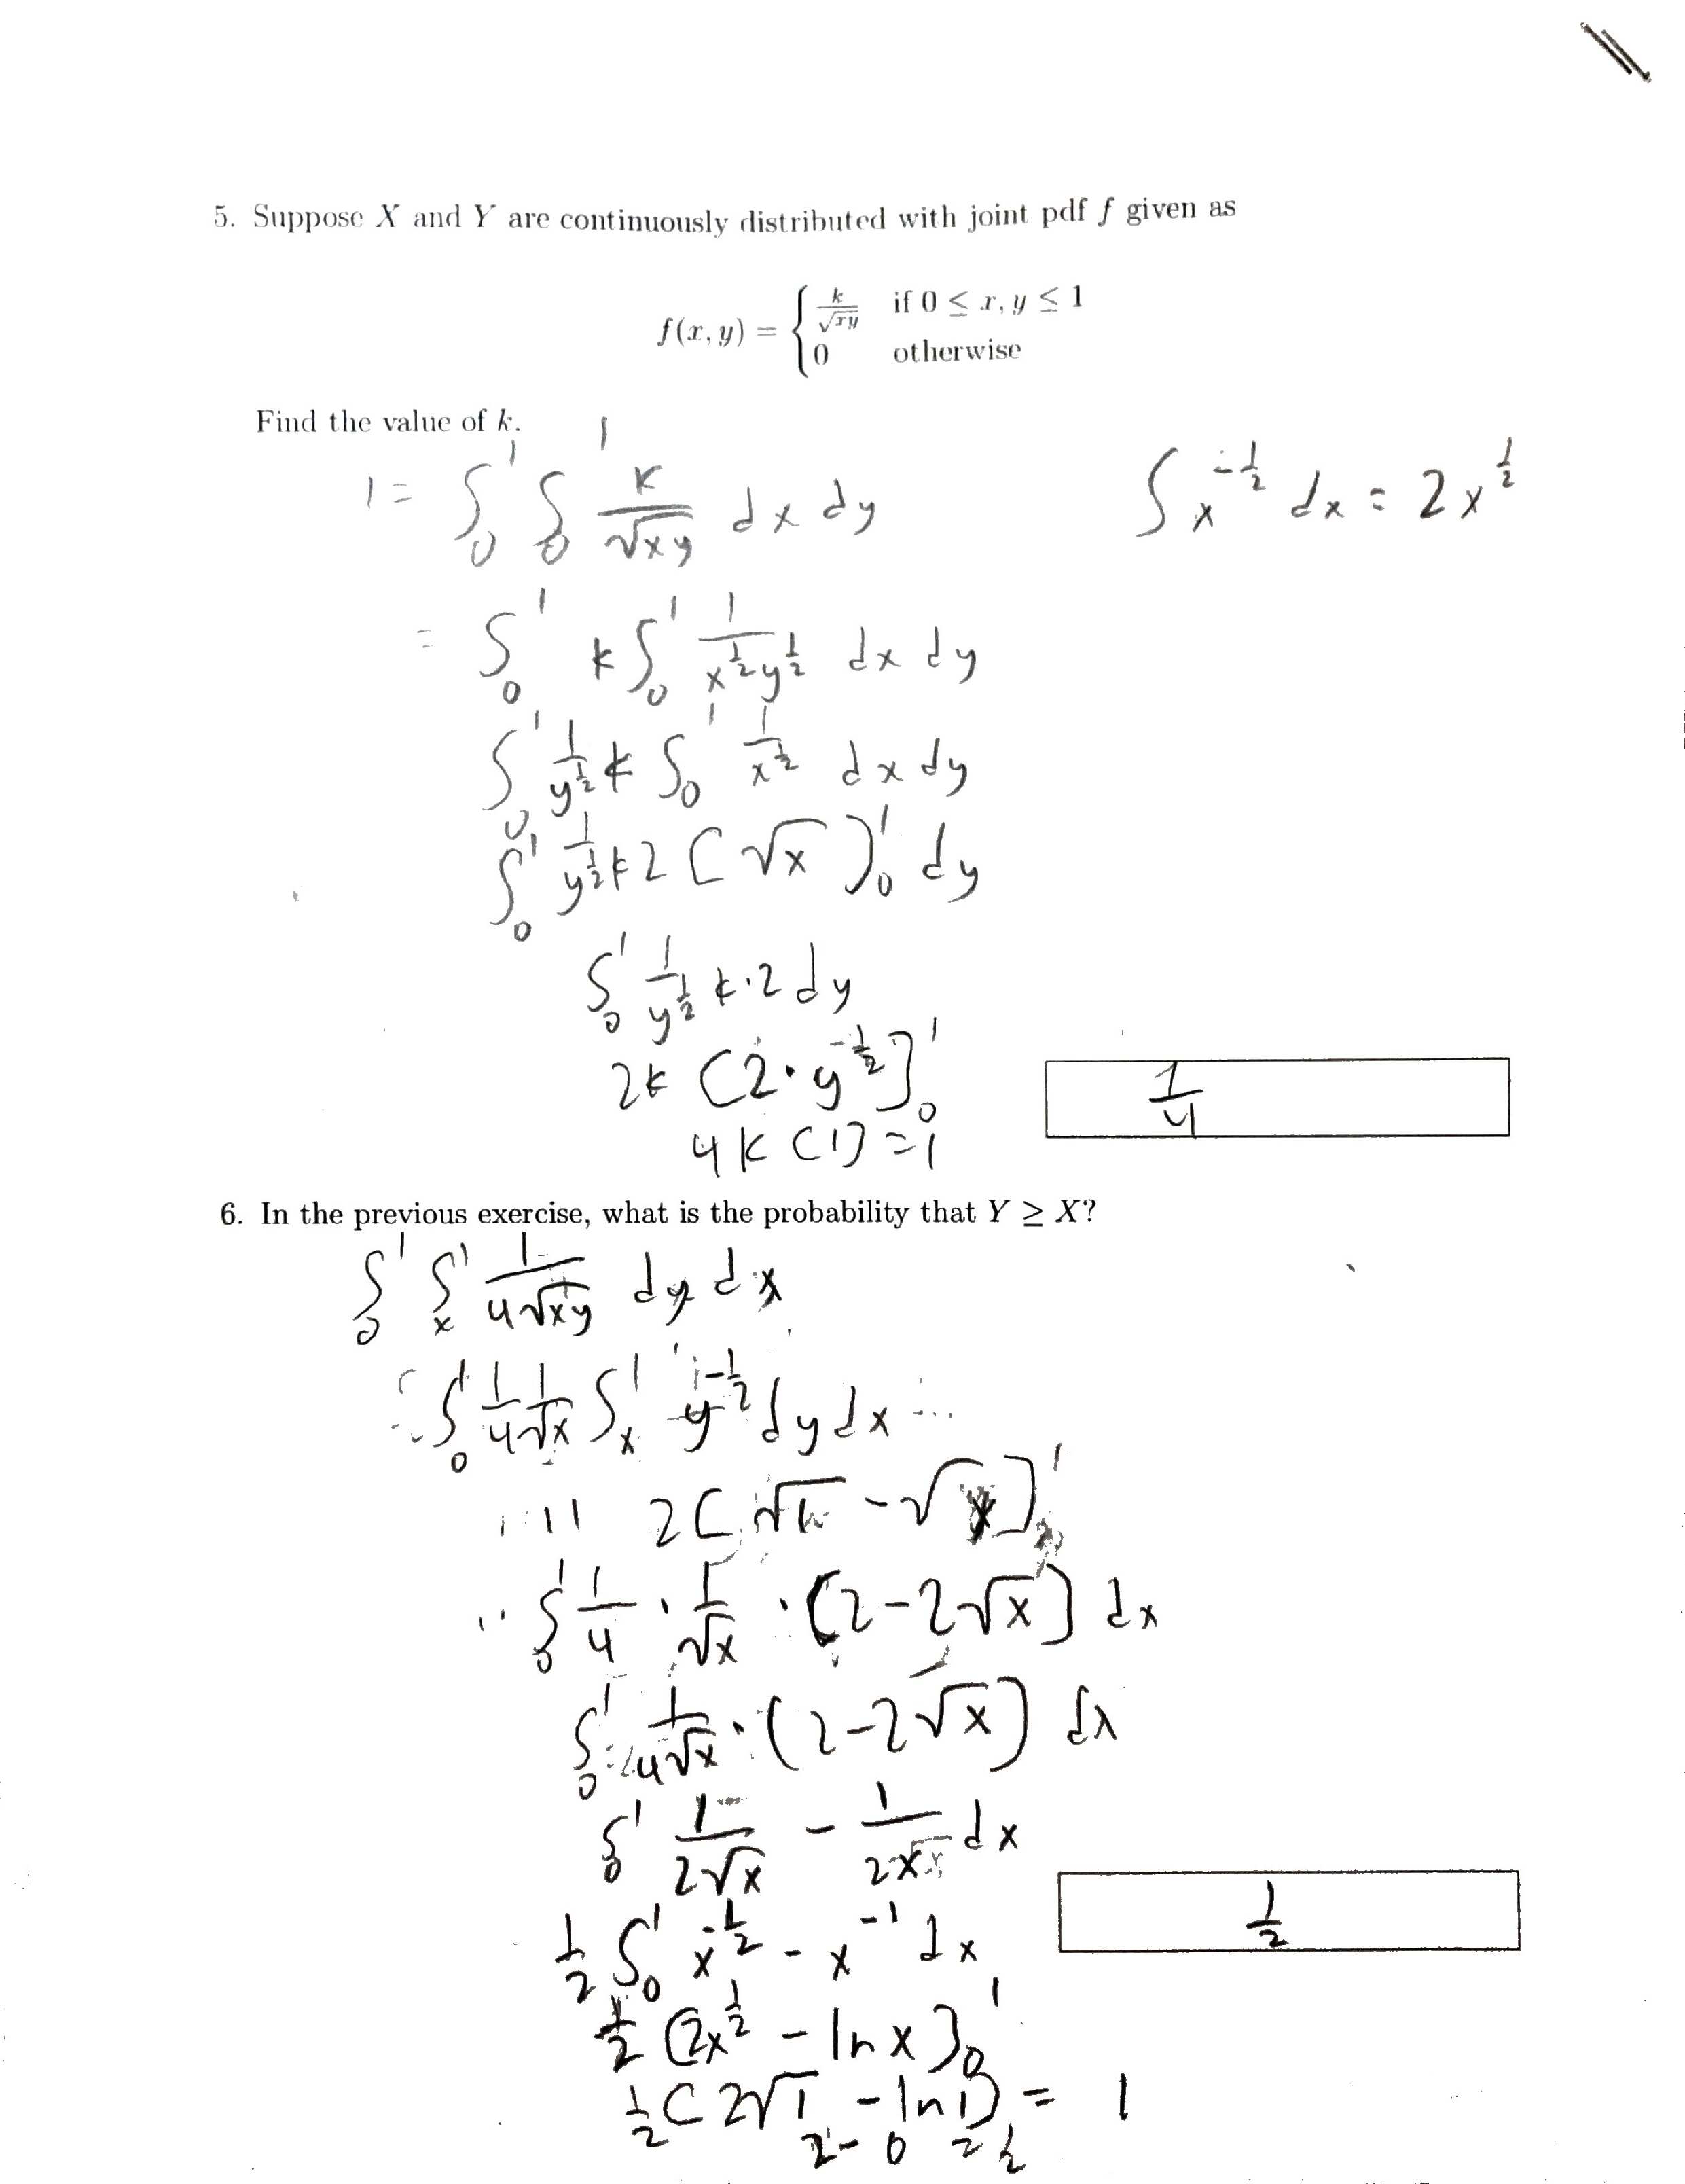 5. Suppose X and Y are continuously distributed with joint pdf f given as
f(x, y) = { k/√xy if 0 ≤ x, y ≤ 1
0 otherwise
Find the value of k.
1 = ∫₀¹ ∫₀¹ k/√xy dx dy
∫ x^(-1/2) dx = 2x^(1/2)
= ∫₀¹ k ∫₀¹ 1/(x^(1/2) y^(1/2)) dx dy
∫₀¹ 1/y^(1/2) k ∫₀¹ 1/x^(1/2) dx dy
∫₀¹ 1/y^(1/2) k 2 [√x]₀¹ dy
∫₀¹ 1/y^(1/2) k·2 dy
2k [2·y^(-1/2)]₀¹
4k (1) = 1
1/4
6. In the previous exercise, what is the probability that Y ≥ X?
∫₀¹ ∫ₓ¹ 1/(4√xy) dy dx
= ∫₀¹ 1/4 1/√x ∫ₓ¹ y^(-1/2) dy dx
11 2[√1 - √x]¹
∫₀¹ 1/4 · 1/√x · (2-2√x) dx
∫₀¹ 1/(4√x) · (2-2√x) dx
∫₀¹ 1/(2√x) - 1/(2x) dx
1/2 ∫₀¹ x^(-1/2) - x^(-1) dx
1/2 (2x^(1/2) - ln x]₀¹
1/2 (2√1 - ln 1) = 1
2 - 0 = 2
1/2